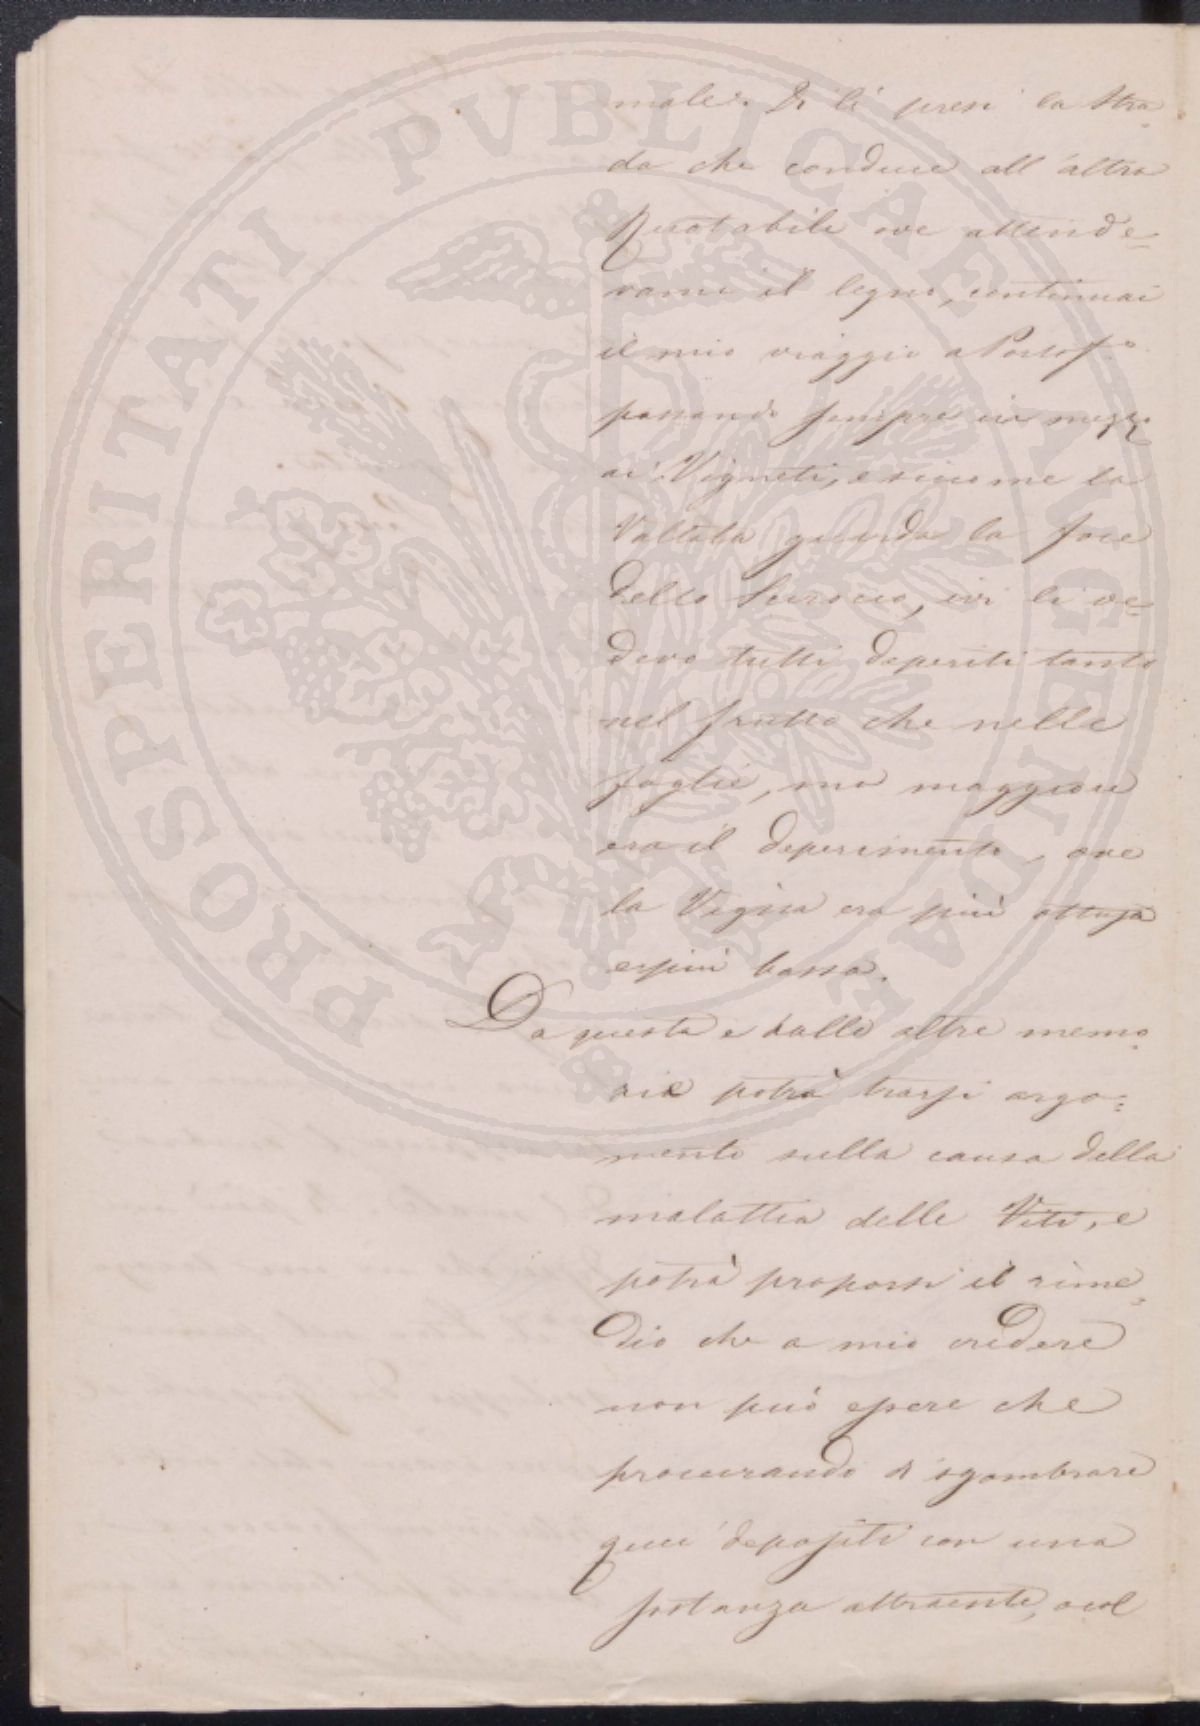 male. Di lì presi la stra=
da che conduce all'altra
Ruotabile ove attende=
vami il legno, continuai
il mio viaggio a Portof.o
passando sempre in mezzo
ai Vigneti, e siccome la
Vallata guarda la foce
dello Scirocco, ivi li ve=
devo tutti deperiti tanto
nel frutto che nelle
foglie, ma maggiore
era il deperimento, ove
la Vigna era più
e più bassa.
Da questa e dalle altre memo=
rie potrà trarsi argo=
mento sulla causa della
malattia delle Viti, e
potrà proporsi il rime=
dio che a mio credere
non può essere che
procurando di sgombrare
quei depositi con una
sostanza attraente, o col
PROSPERITATI PVBLICAE AVGENDAE